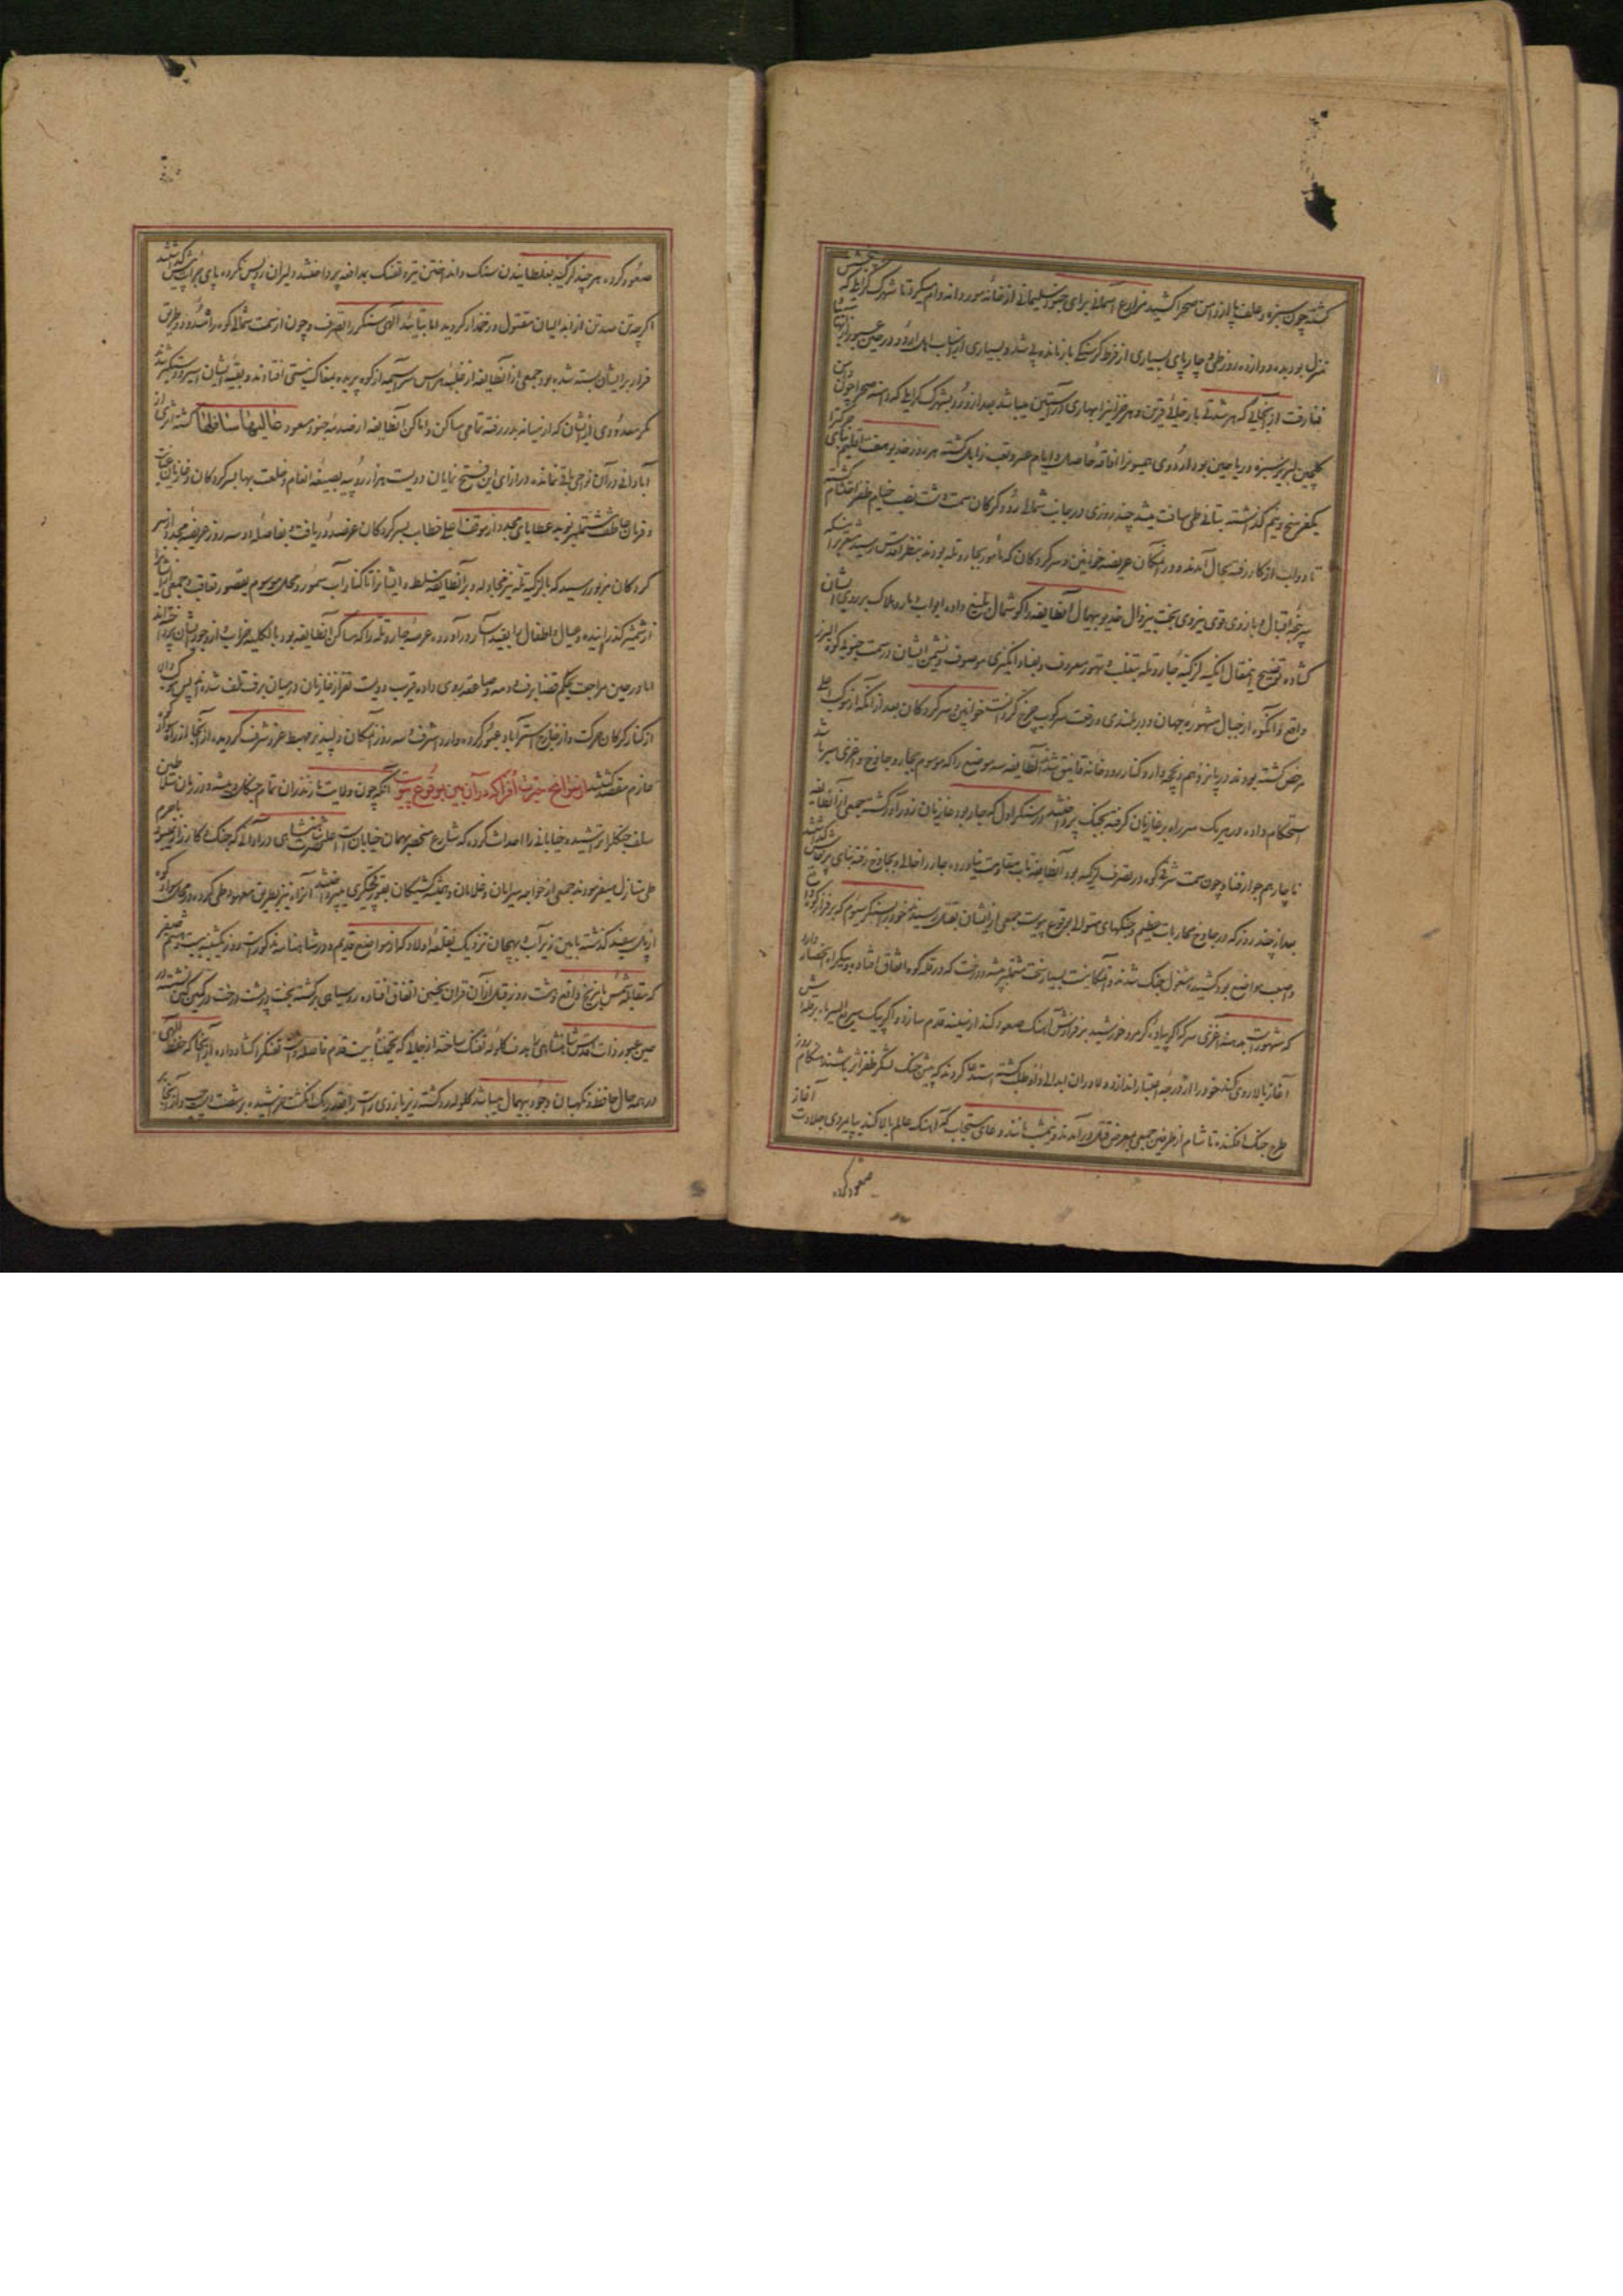 کشته چون سبزه و علف پا از دامن صحرا کشید مزارع آسمانی برای جنود سلیمانی از خانه مور دانه وام میکرد تا شهرک کرایلی که
منزل بود بده دوازده روز طی و چارپای بسیاری از فرط کرسنکی باز مانده پی شد و بسیاری از اسباب اهل اردو در حین عبور از آنها
بغارت از آنجایی که هر شدتی با رخائی قرین و هر خزانرا بهاری در آستین میباشد بعد از ورود بشهرک کرایلی که دامنه صحرا چون دامن
کلچین لبریز سبزه و ریاحین بود اردوی همیونرا افاقه حاصل و ایام عسر و تعب زایل کشته هر روز خدیو هفت اقلیم
یکفرسخ و نیم کذشته بتانی طی مسافت میشد چند روزی در جانب شمالی رود کرکان سمت دشت نصب خیام ظفر احتشام
تا دواب از کار رفته بحال آمدند و در آن مکان عریضه خوانین و سرکردکان که مأمور بجار و تله بودند بنظر اقدس رسید مشعر بر اینکه
سرپنجه اقبال و بازوی قوی نیروی بخت بیزوال خدیو بیهمال آنطایفه را کوشمال بلیغ داده ابواب بلا و هلاک بر روی ایشان
کشاده توضیح این مقال آنکه لزکیه جار و تله بتغلب و تهور معروف و بفساد انکیزی موصوف و نشیمن ایشان در سمت جنوبی کوه البرز
واقع و آنکوه از جبال مشهوره جهان و در بلندی و رفعت سرکوب چرخ کردان است خوانین و سرکردکان بعد از آنکه از موکب اعلی
مرخص کشته بودند در پانزدهم ذیقعده وارد کنار رودخانه قانیق شدند آنطایفه سه موضع را که موسوم بجار و جاوخ و اغزی بر باشد
استحکام داده در هر یک سر راه بر غازیان کرفته بجنک پرداختند در سنکر اول که جار بود غازیان زورآور کشته جمعی از آنطایفه
ناچار بهم جوار فنا و چون سمت شرقی کوه در تصرف لزکیه بود آنطایفه تاب مقاومت نیاورده جار را خالی و بجاوخ رفته بنای پرخاش کذاشتند
بعد از چند روز که در جاوخ محاربات عظیم و جنکهای متوالی بوقوع پیوست جمعی از ایشان بقتل رسیده خود را بسنکر سیوم که بر فراز کوه
و اصعب مواضع بود کشیده مشغول جنک شدند و آنمکانیست بسیار سخت مشتمل بر بیشه و درخت که در قله کوه اتفاق افتاده و یکراه انحصار دارد
که مشهور است بدهنه اغزی سرکه اکر پیاده کرد خورشید بر فرازش آهنک صعود کند از سینه قدم سازد و اکر پیک سریع السیر ماه بر طی آن
آغاز بالا روی کند خود را از درجه اعتبار اندازد دلاوران ابدالی داوطلب کشته استدعا کردند که پیش جنک لشکر ظفر اثر باشند هنکام روز
طرح جنک افکنده تا شام از طرفین جمعی بمعرض قتل درآمدند و نیم شب مانند دعای مستجاب که آهنک عالم بالا کند بپایمردی جلادت آغاز
صعود کرده
صعود کرده هر چند لزکیه بغلطانیدن سنک و انداختن تیر و تفنک بمدافعه پرداختند دلیران روی پس نکرده پای جرات پیش کذاشتند
اکرچه تن صد تن از ابدالیان مقتول و زخمدار کردیدند اما بتائید الهی سنکر را بتصرف و چون از سمت شمالی کوه راه مسدود و طریق
فرار بر ایشان بسته شده بود جمعی از آنطایفه از غلبه هراس سراسیمه از کوه پریده بمغاک نیستی افتادند و بقیه ایشان اسیر و دستکیر شدند
مکر معدودی از ایشان که از میانه بدر رفته تمامی مساکن و اماکن آنطایفه از صدمه جنود مسعود عالیها سافلها کشته اثری از
آبادانی در آن نواحی باقی نماند در ازای این فتح نمایان دویست هزار روپیه بصیغه انعام و خلعت بها بسرکردکان و غازیان عنایت
و فرمان عاطفت مشتمل بر نوید عطایای مجدد از موقف اعلی خطاب بسرکردکان عز صدور یافت و بفاصله دو سه روز عریضه مجدد از سر
کردکان مزبور رسید که با لزکیه تله نیز مجادله و بر آنطایفه مسلط و ایشانرا تا کنار آب سمور و محل موسوم بقصور تعاقب و جمعی را
از شمشیر کذرانیده و عیال و اطفال را بقید اسار درآورده عرصه جار و تله را که مساکن آنطایفه بود بالکلیه خراب و از وجود ایشان پرداخته اند
اما در حین مراجعت بحکم قضا برف و دمه و صاعقه روی داده قریب دویست نفر از غازیان در میان برف تلف شده اند پس موکب والا
از کنار کرکان حرکت و از خارج استرآباد عبور کرده وارد اشرف و سه روز آنمکان دلپذیر مهبط عز و شرف کردیده از آنجا از راه سوادکوه
عازم مقصد کشتند از سوانح حیرت افزا که در آن بین بوقوع پیوست آنکه چون ولایت مازندران تمام جنکل و بیشه و در زمان سلاطین
سلف جنکلرا تراشیده خیابانی را احداث کرده که شارع منحصر بهمان خیابان است اعلیحضرت شاهنشاهی در اوانی که جنک و کارزاری نبود با حرم
طی منازل میفرمودند جمعی از خواجه سرایان و غلامان و همیشه کشیکان بعقب قورقچیکری میپرداختند آنراه نیز بطریق معهود طی کرده در محال سوادکوه
از پل سفید کذشته مابین زیرآب و بهجان نزدیک بقلعه اولاد که از مواضع قدیم و در شاهنامه مذکور است در روز یکشنبه بیست و هشتم صفر
که مقابله شمس با مریخ واقع و شب روز قبل از آن قران نحسین اتفاق افتاده روسیاهی برکشته بخت در پشت درخت در کمین کین نشسته در
حین عبور ذات اقدس شاهنشاهی را هدف کلوله تفنک ساخته از جایی که تخمینا بیست قدم فاصله داشت تفنک را کشاد داده از آنجا که حفظ الهی
در همه حال حافظ و نکهبان وجود بیهمال میباشد کلوله رد کشته زیر بازوی راست را بقدر یک انکشت خراشیده